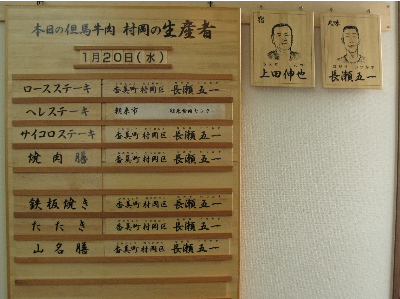 本日の但馬牛肉 村岡の生産者
1月20日(水)
ロースステーキ 香美町 村岡区 長瀬五一
ヘレステーキ 朝来市
サイコロステーキ 香美町 村岡区 長瀬五一
焼肉膳 香美町 村岡区 長瀬五一
鉄板焼き 香美町 村岡区 長瀬五一
たたき 香美町 村岡区 長瀬五一
山名膳 香美町 村岡区 長瀬五一
上田伸也
長瀬五一